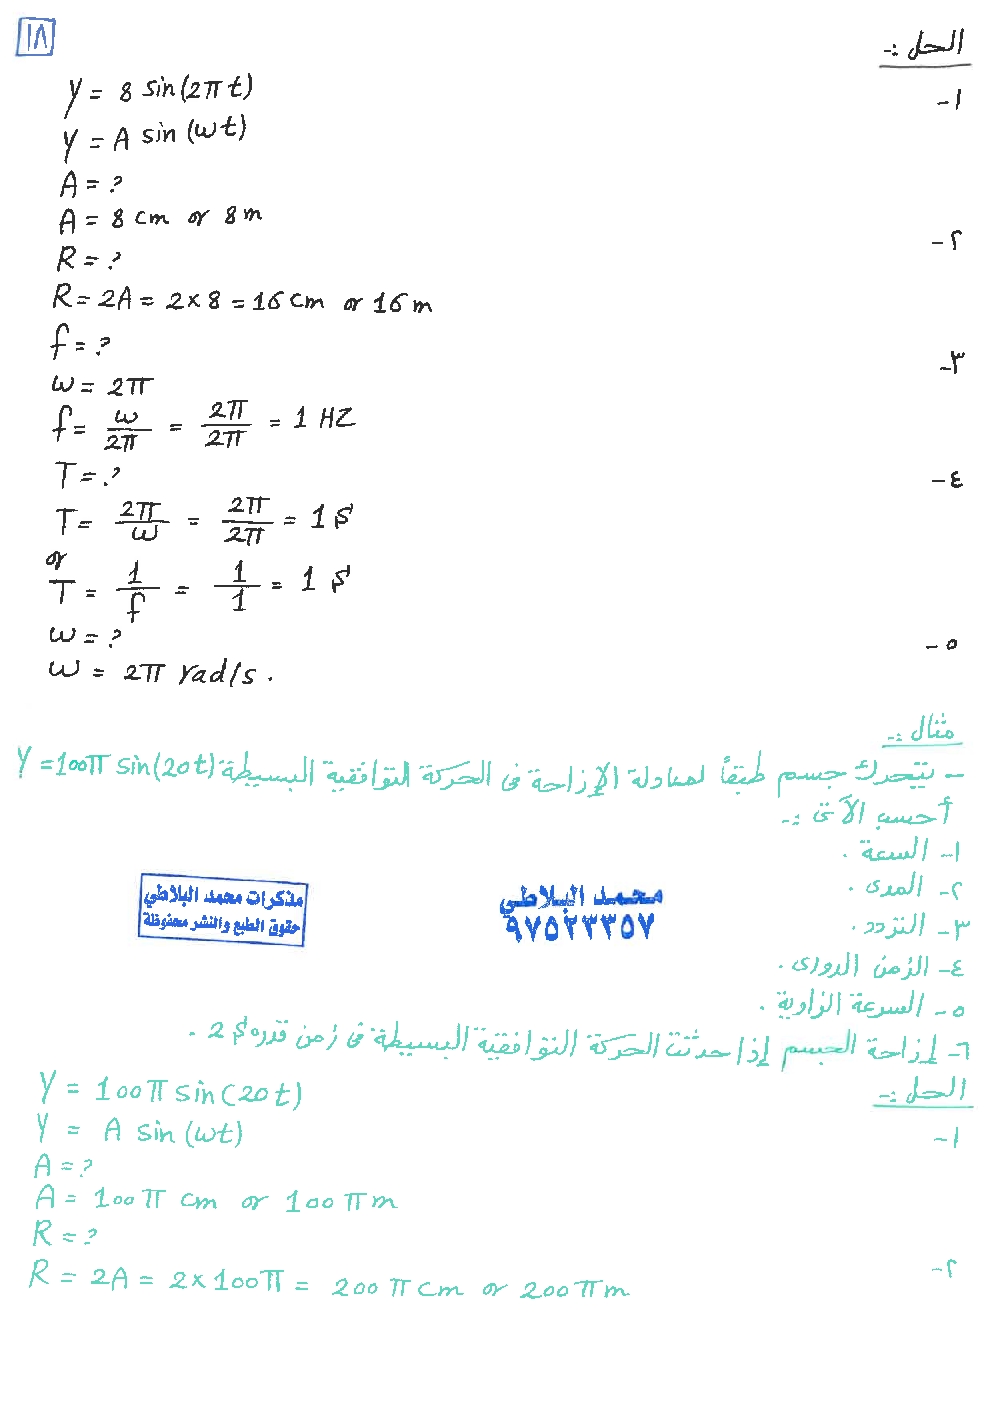 ١٨
الحل :-
١- y = 8 sin(2π t)
y = A sin (ωt)
A = ?
A = 8 cm or 8 m
٢- R = ?
R = 2A = 2 × 8 = 16 cm or 16 m
٣- f = ?
ω = 2π
f = ω/2π = 2π/2π = 1 HZ
٤- T = ?
T = 2π/ω = 2π/2π = 1 s
or
T = 1/f = 1/1 = 1 s
٥- ω = ?
ω = 2π rad/s .
مثال :-
- يتحرك جسم طبقاً لمعادلة الإزاحة فى الحركة التوافقية البسيطة y = 100π sin(20t)
أحسب الآتى :-
١- السعة .
٢- المدى .
٣- التردد .
٤- الزمن الدورى .
٥- السرعة الزاوية .
٦- إزاحة الجسم إذا حدثت الحركة التوافقية البسيطة فى زمن قدره 2 s .
مذكرات محمد البلاطي
حقوق الطبع والنشر محفوظة
محمد البلاطي
٩٧٥٢٣٣٥٧
الحل :-
y = 100π sin(20t)
١- y = A sin (ωt)
A = ?
A = 100π cm or 100π m
R = ?
٢- R = 2A = 2 × 100π = 200π cm or 200π m